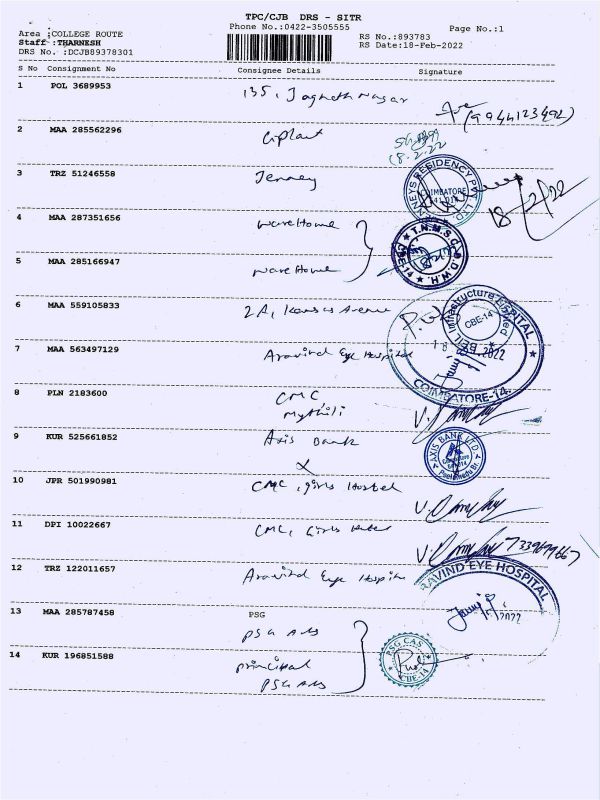 TPC/CJB DRS - SITR
Area :COLLEGE ROUTE Phone No.:0422-3505555 Page No.:1
Staff :THARNESH RS No.:893783
DRS No. :DCJB89378301 RS Date:18-Feb-2022
S No Consignment No Consignee Details Signature
1 POL 3689953 135, Jagnath Nagar
(9944123492)
2 MAA 285562296
18.2.22
3 TRZ 51246558 Jenney
RESIDENCY PVT LTD.
COIMBATORE
18/2/22
4 MAA 287351656 wareHome
T.N.M.S.C. D.W.H.
5 MAA 285166947 wareHome
6 MAA 559105833 2A, Kansas Avenue
Infrastructure
CBE-14
7 MAA 563497129 Aravind Eye Hospital
HOSPITAL
2022
COIMBATORE-14.
8 PLN 2183600 CMC
Mythili
9 KUR 525661852 Axis Bank
AXIS BANK LTD.
X
10 JPR 501990981 CMC, girls Hostel
11 DPI 10022667 CMC, Girls
12 TRZ 122011657 Aravind Eye Hospita
RAVIND EYE HOSPITAL
2022
13 MAA 285787458 PSG
PSG Arts
14 KUR 196851588 principal
PSG Arts
PSG CAS
CBE-14